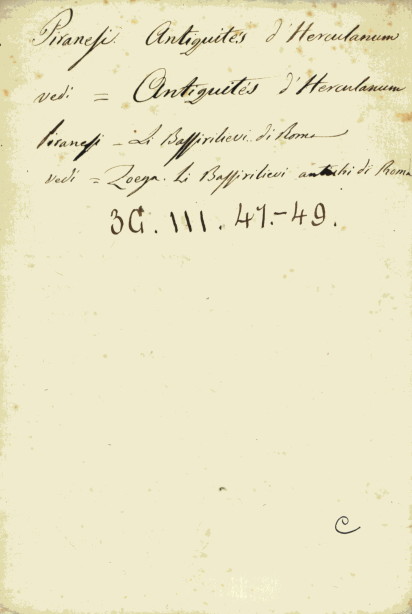 Piranesi. Antiquités d'Herculanum
vedi = Antiquités d'Herculanum
Piranesi - Li Bassirilievi di Roma
vedi = Zoega. Li Bassirilievi antichi di Roma
3G. III. 47.-49.
C